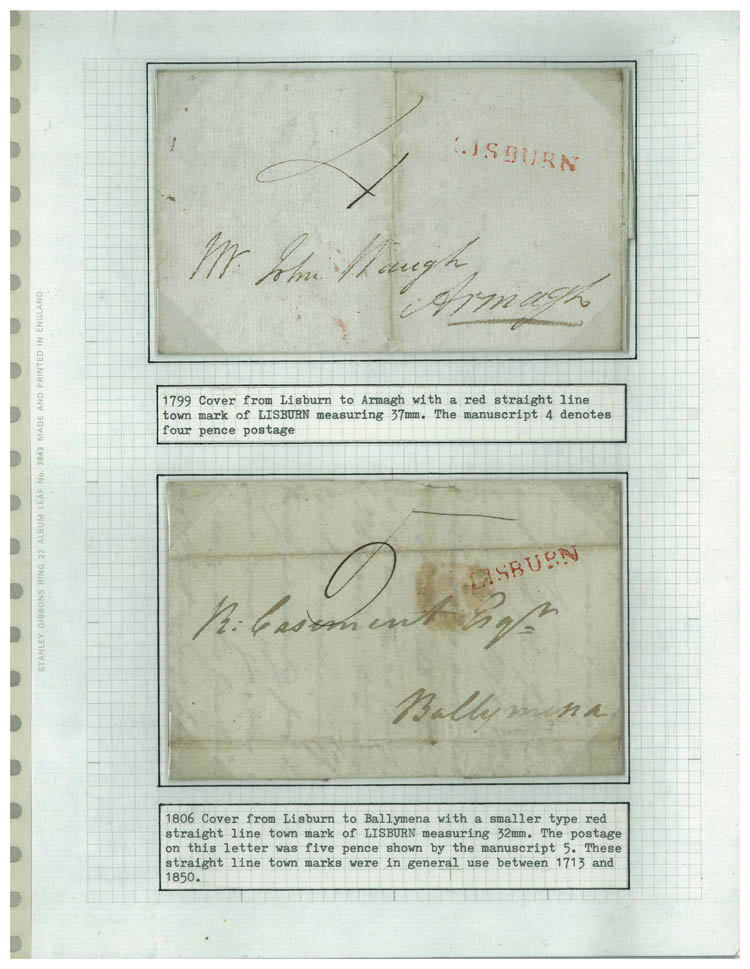 STANLEY GIBBONS RING 22 ALBUM LEAF No. 3843 MADE AND PRINTED IN ENGLAND
4
LISBURN
Mr. John Waugh
Armagh
1799 Cover from Lisburn to Armagh with a red straight line
town mark of LISBURN measuring 37mm. The manuscript 4 denotes
four pence postage
5
LISBURN
R: Casement Esqr
Ballymena
1806 Cover from Lisburn to Ballymena with a smaller type red
straight line town mark of LISBURN measuring 32mm. The postage
on this letter was five pence shown by the manuscript 5. These
straight line town marks were in general use between 1713 and
1850.